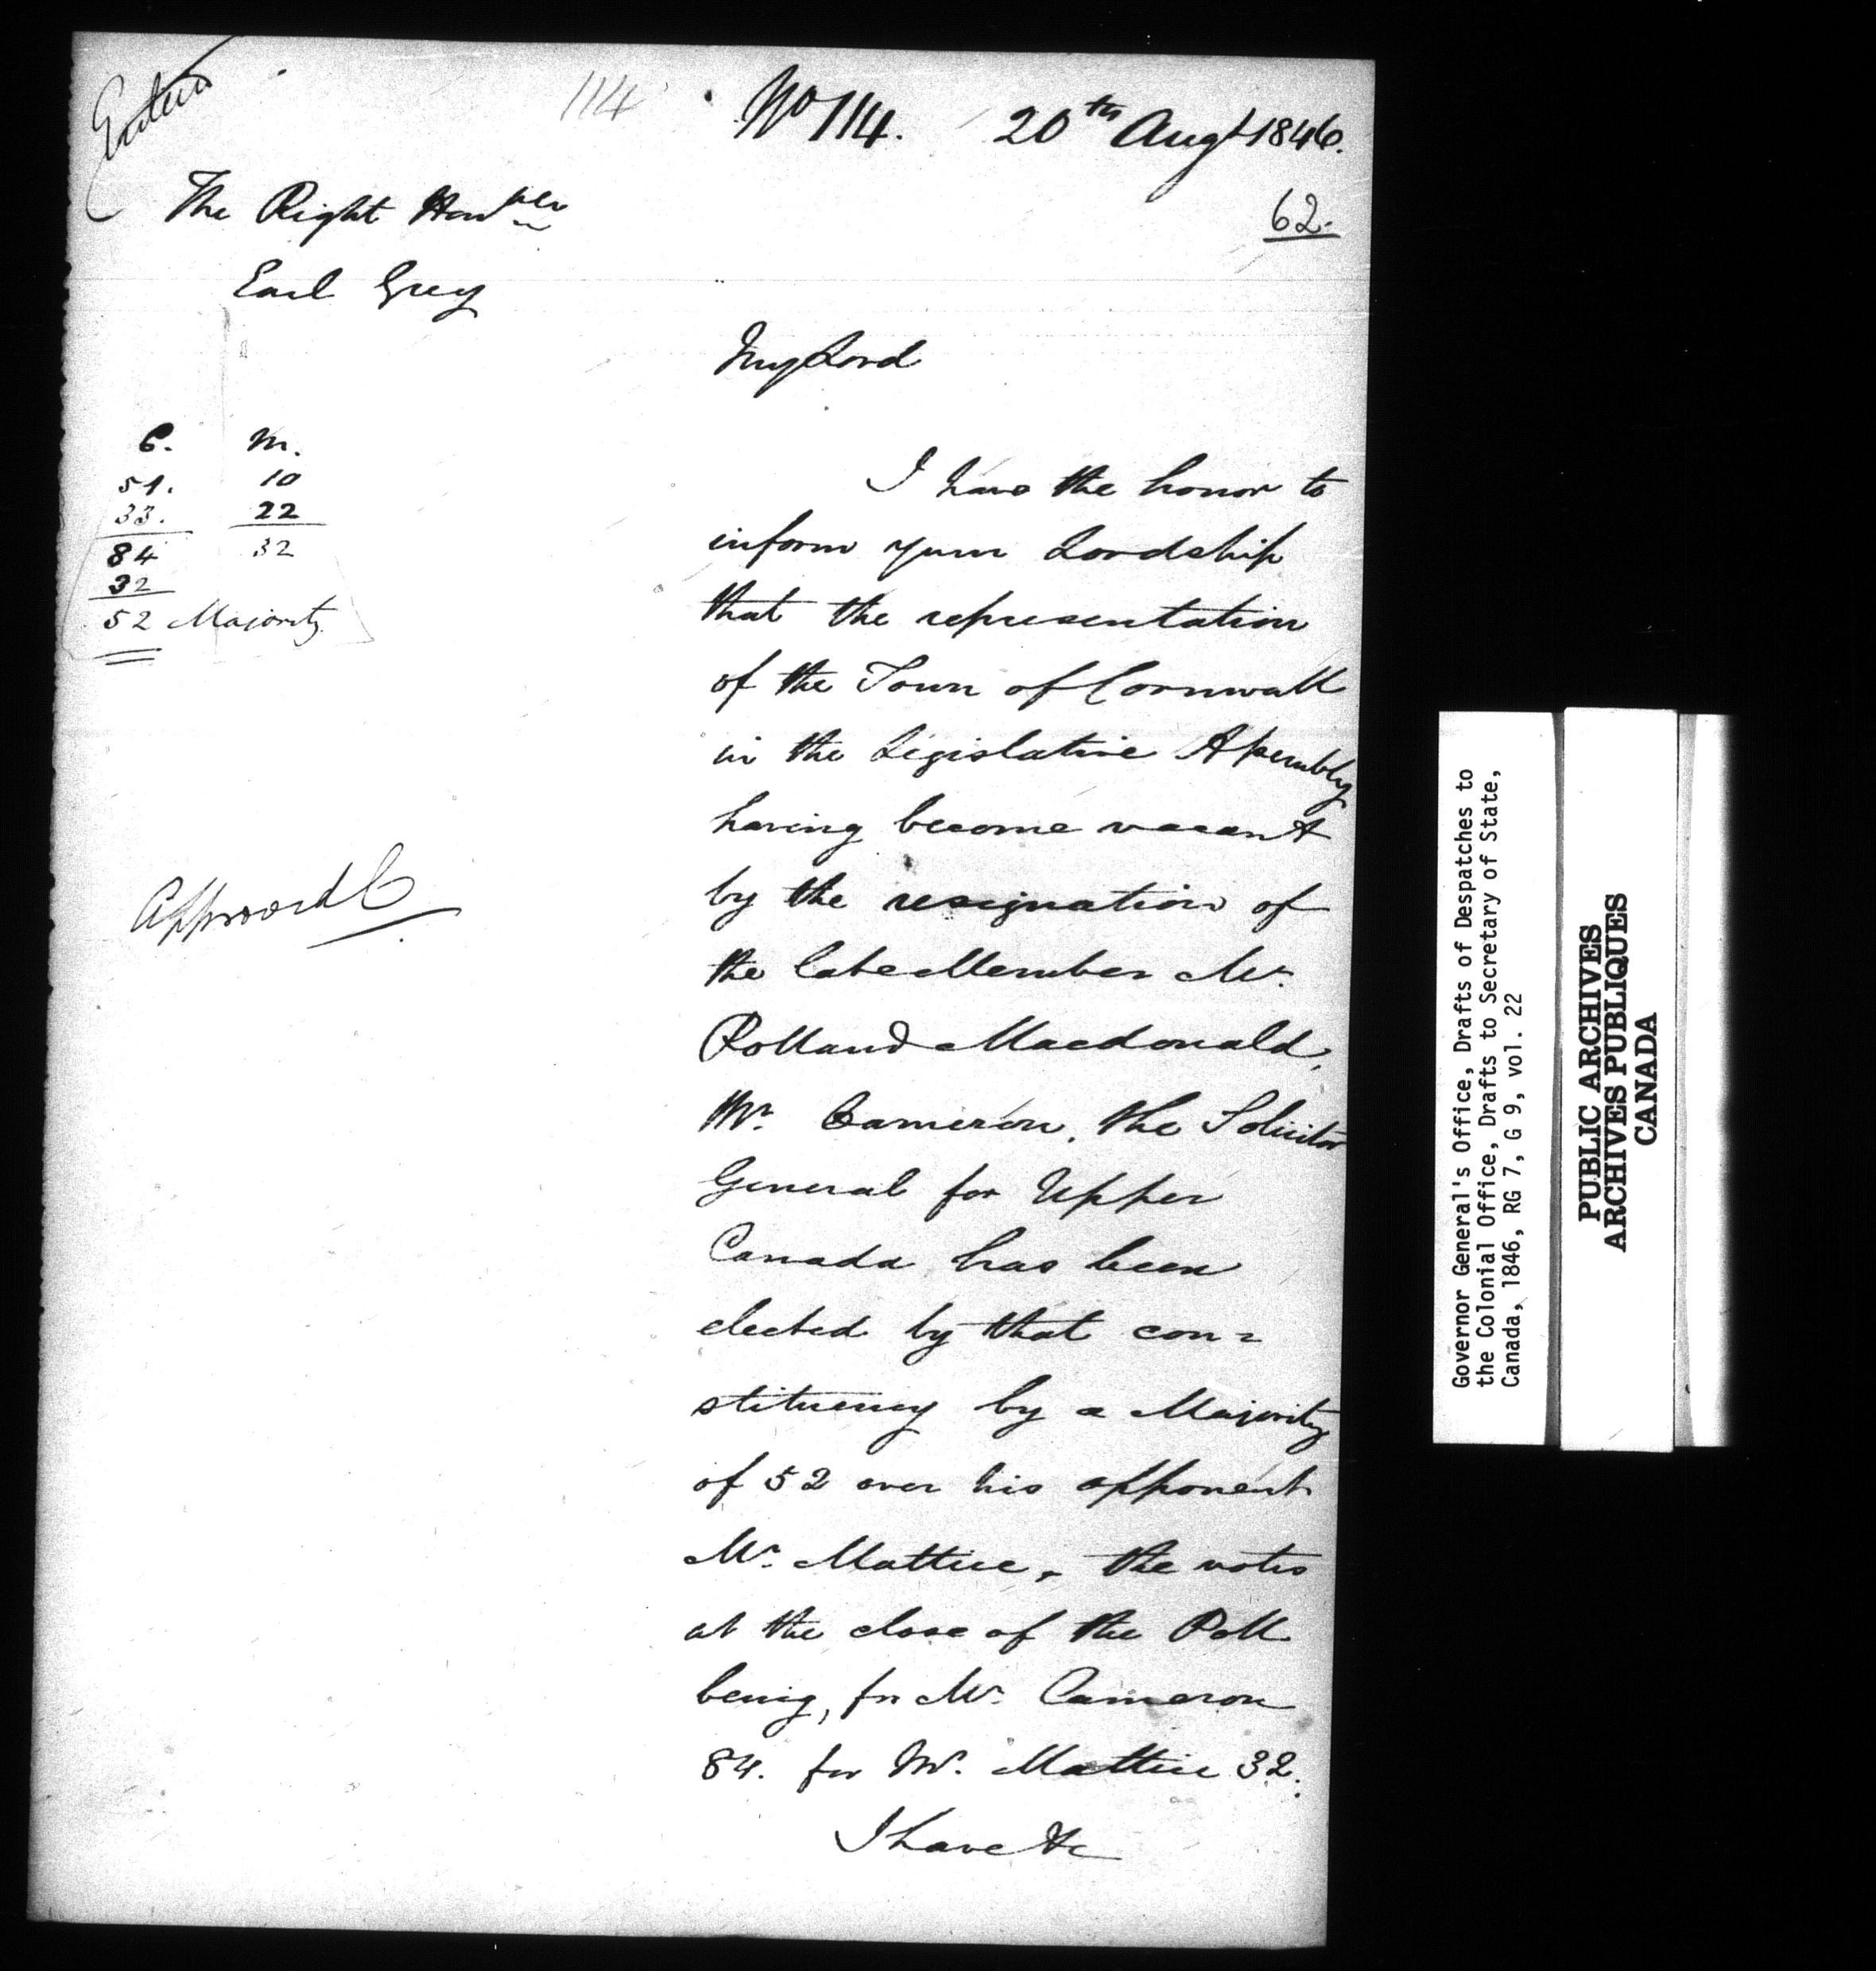 Entered
114
No 114. 20th Augt 1846.
62.
The Right Honble
Earl Grey
My Lord
C. M.
51. 10
33. 22
84 32
32
52 Majority
I have the honor to
inform your Lordship
that the representation
of the Town of Cornwall
in the Legislative Assembly
having become vacant
by the resignation of
the late Member Mr.
Rolland Macdonald,
Mr. Cameron, the Solicitor
General for Upper
Canada has been
elected by that con=
stituency by a Majority
of 52 over his opponent
Mr. Mattice, the votes
at the close of the Poll
being, for Mr. Cameron
84. for Mr. Mattice 32.
I have &c
Approved C
Governor General's Office, Drafts of Despatches to
the Colonial Office, Drafts to Secretary of State,
Canada, 1846, RG 7, G 9, vol. 22
PUBLIC ARCHIVES
ARCHIVES PUBLIQUES
CANADA